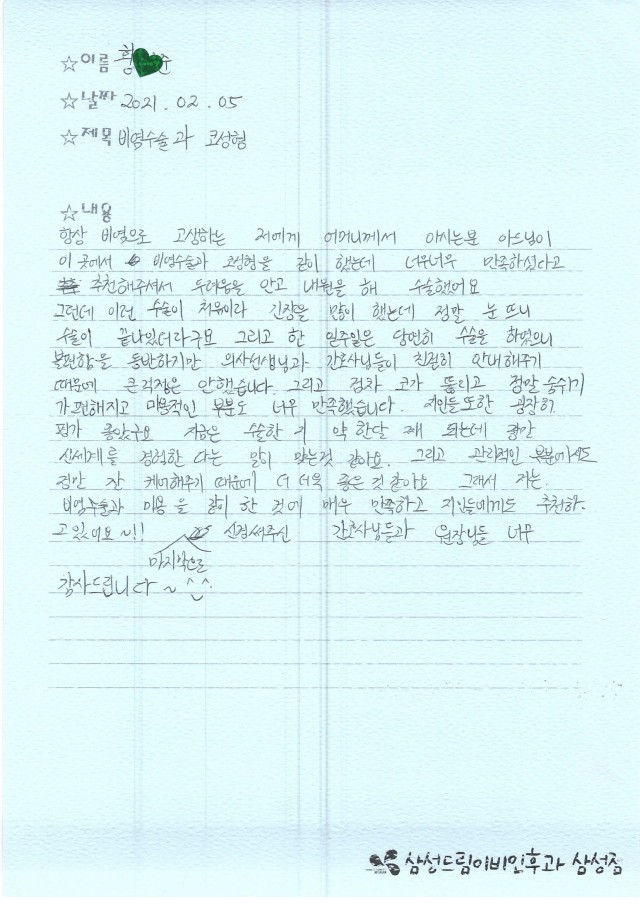 ☆이름 황 준
☆날짜 2021. 02. 05
☆제목 비염수술과 코성형
☆내용
항상 비염으로 고생하는 저에게 어머니께서 아시는분 아드님이
이 곳에서 비염수술과 코성형을 같이 했는데 너무너무 만족하셨다고
추천해주셔서 두려움을 안고 내원을 해 수술했어요
그런데 이런 수술이 처음이라 긴장을 많이 했는데 정말 눈 뜨니
수술이 끝나있더라구요 그리고 한 일주일은 당연히 수술을 하였으니
불편함을 동반하지만 의사선생님과 간호사님들이 친절히 안내해주기
때문에 큰걱정은 안했습니다. 그리고 점차 코가 뚫리고 정말 숨쉬기
가 편해지고 미용적인 부분도 너무 만족했습니다. 지인들또한 굉장히
평가 좋았구요 지금은 수술한 지 약 한달 째 되는데 정말
신세계를 경험한 다는 말이 맞는것 같아요. 그리고 관리적인 부분에서도
정말 잘 케어해주기 때문에 더 더욱 좋은 것 같아요 그래서 저는.
비염수술과 미용을 같이 한 것에 매우 만족하고 지인들에게도 추천하.
고 있어요~!! 마지막으로 신경써주신 간호사님들과 원장님들 너무
감사드립니다~^^
삼성드림이비인후과 삼성점